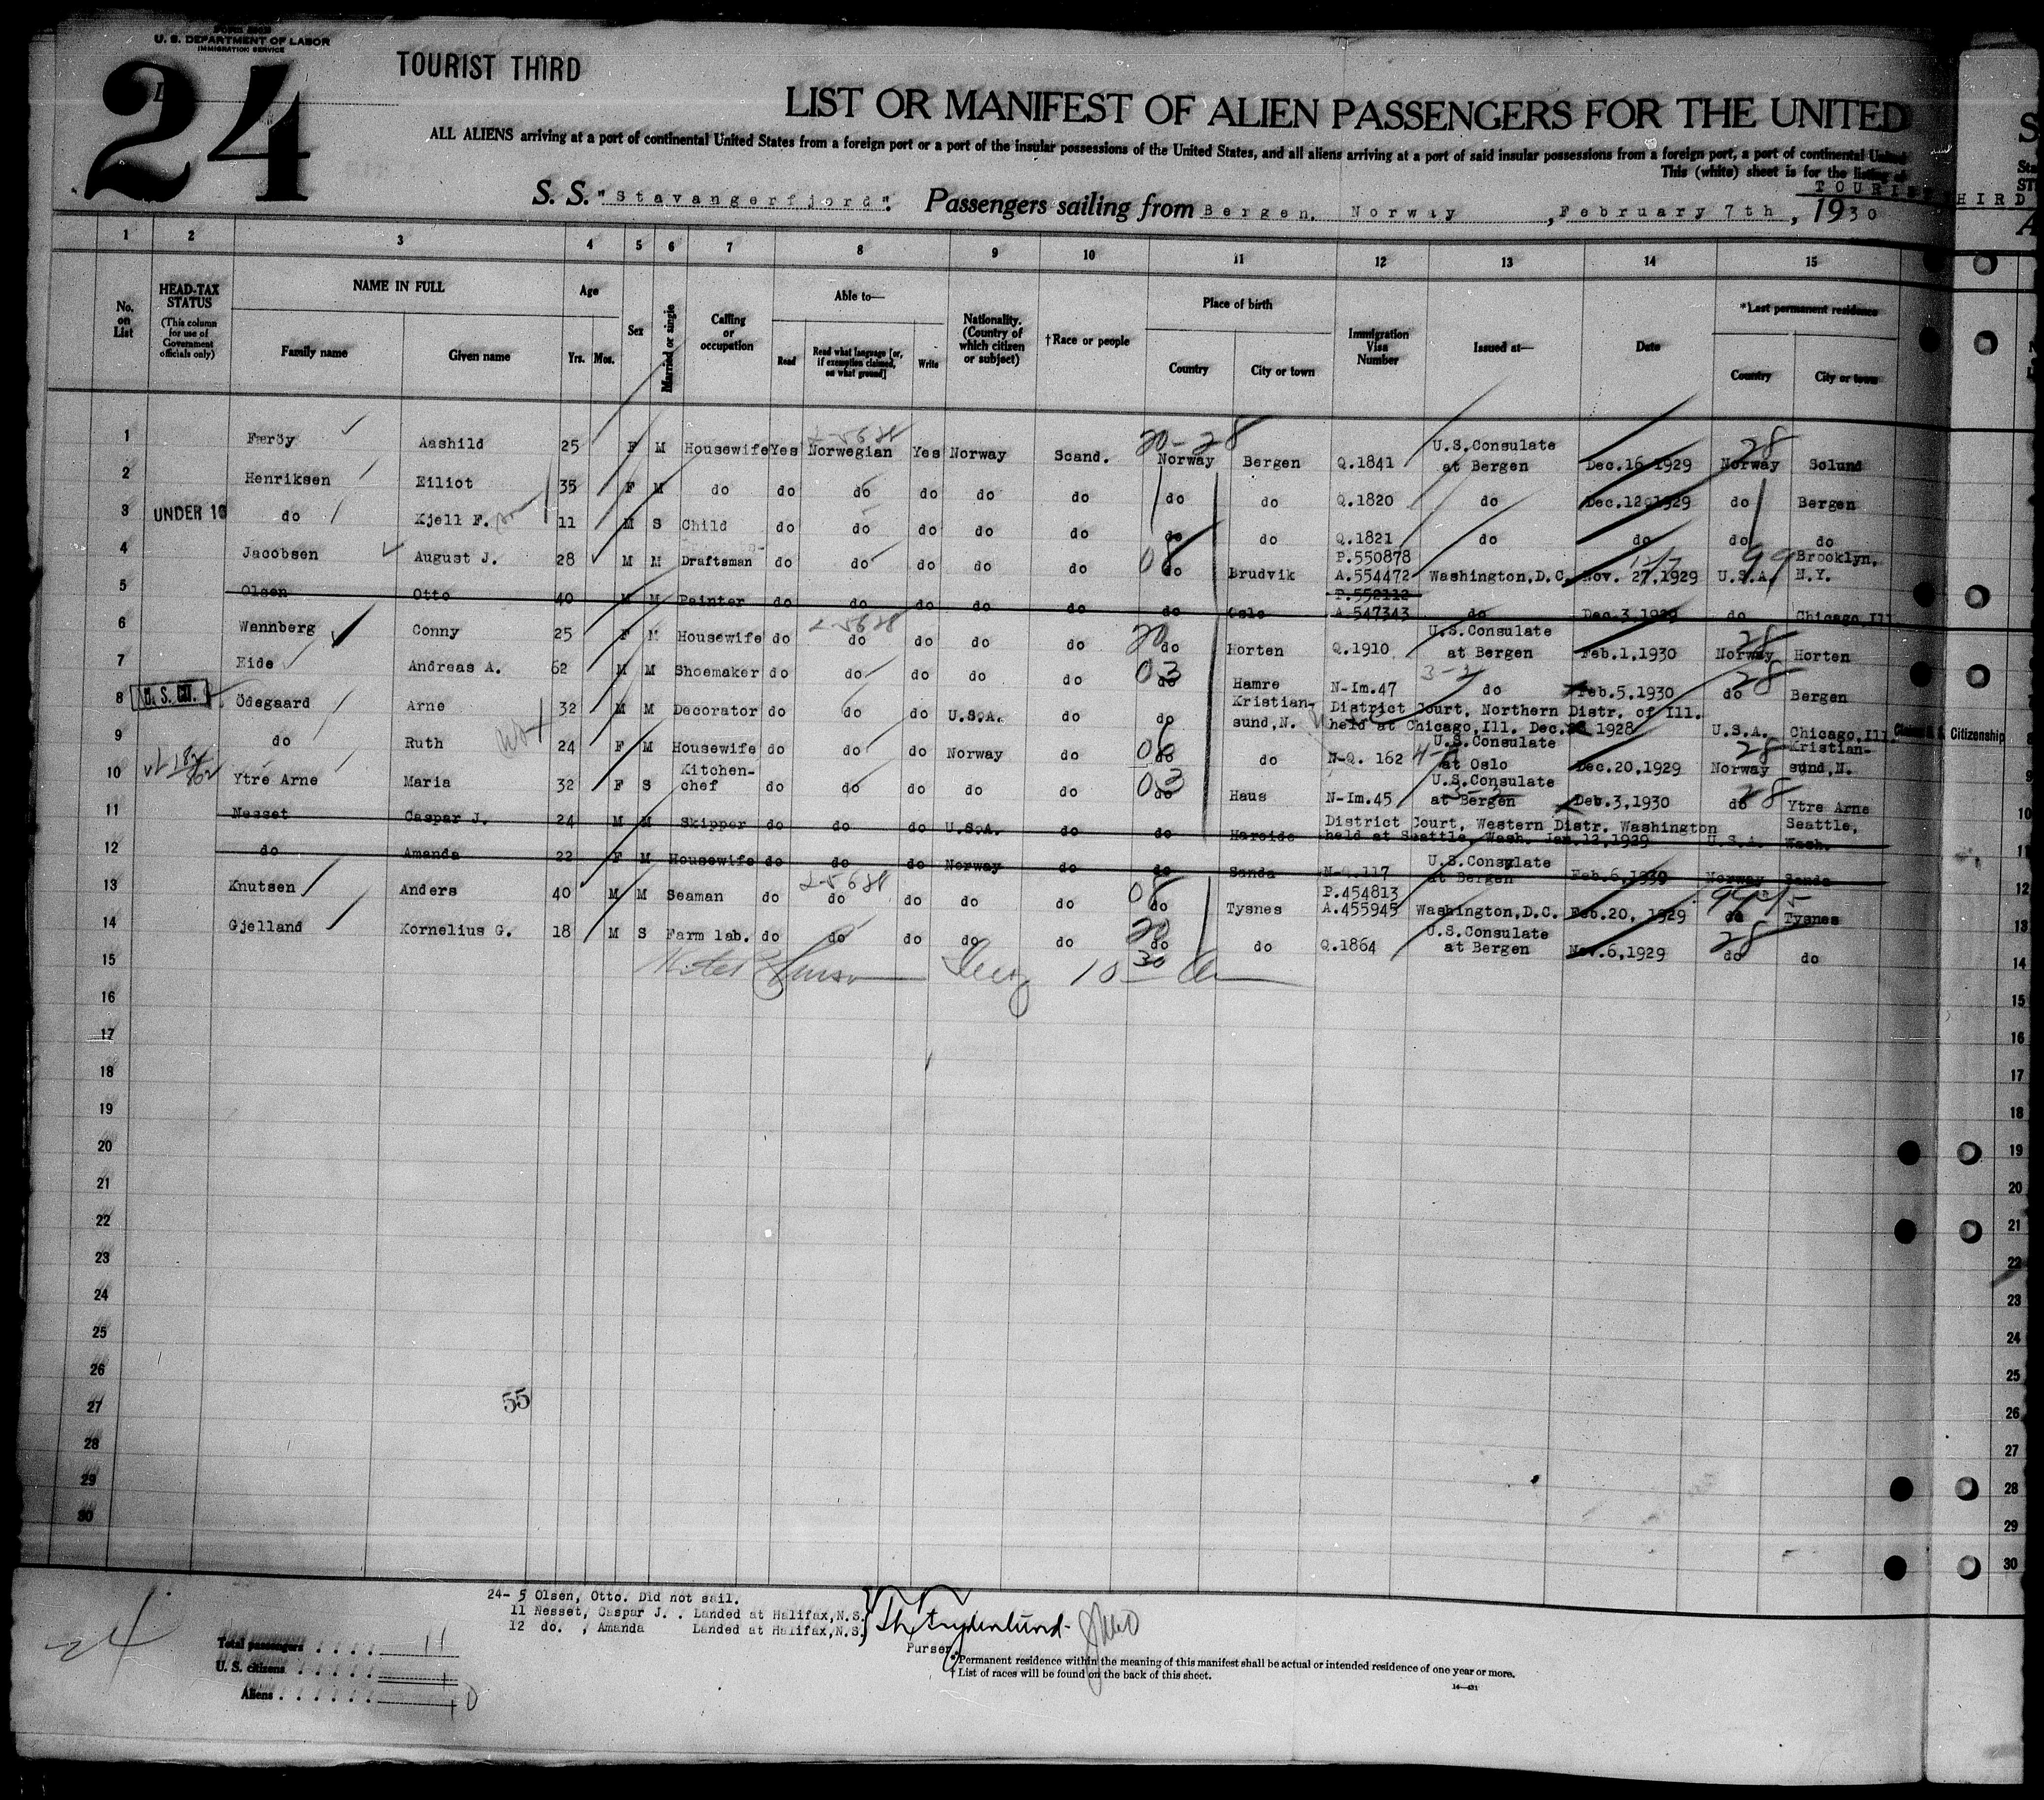 FORM 500B
U. S. DEPARTMENT OF LABOR
IMMIGRATION SERVICE
24
TOURIST THIRD
LIST OR MANIFEST OF ALIEN PASSENGERS FOR THE UNITED
ALL ALIENS arriving at a port of continental United States from a foreign port or a port of the insular possessions of the United States, and all aliens arriving at a port of said insular possessions from a foreign port, a port of continental United
This (white) sheet is for the listing of
TOURIST THIRD
S. S. "Stavangerfjord". Passengers sailing from Bergen, Norway, February 7th, 1930
1 2 3 4 5 6 7 8 9 10 11 12 13 14 15
No. on List
HEAD-TAX STATUS (This column for use of Government officials only)
NAME IN FULL Family name Given name
Age Yrs. Mos.
Sex
Married or single
Calling or occupation
Able to— Read Read what language [or, if exemption claimed, on what ground] Write
Nationality. (Country of which citizen or subject)
†Race or people
Place of birth Country City or town
Immigration Visa Number
Issued at—
Date
*Last permanent residence Country City or town
1 Færöy Aashild 25 F M Housewife Yes Norwegian Yes Norway Scand. 20-28 Norway Bergen Q.1841 U.S.Consulate at Bergen Dec.16,1929 28 Norway Solund
2 Henriksen Eiliot 35 F M do do do do do do do do Q.1820 do Dec.12,1929 do Bergen
3 UNDER 16 do Kjell F. 11 M S Child do do do do do do do Q.1821 do do do do
4 Jacobsen August J. 28 M M Draftsman do do do do do 08 do Brudvik P.550878 A.554472 Washington,D.C. Nov. 27,1929 99 U.S.A. Brooklyn, N.Y.
5 Olsen Otto 40 M M Painter do do do do do do Oslo P.552112 A.547343 do Dec.3,1929 do Chicago,Ill.
6 Wannberg Conny 25 F M Housewife do do do do do 20 do Horten Q.1910 U.S.Consulate at Bergen Feb.1,1930 28 Norway Horten
7 Eide Andreas A. 62 M M Shoemaker do do do do do 03 do Hamre N-Im.47 3-2 do Feb.5,1930 28 do Bergen
8 U. S. CIT. Ödegaard Arne 32 M M Decorator do do do U.S.A. do do Kristian- sund,N. District Court, Northern Distr. of Ill. held at Chicago,Ill. Dec. 1928 U.S.A. Chicago,Ill. Citizenship
9 do Ruth 24 F M Housewife do do do Norway do 06 do do N-Q. 162 U.S.Consulate at Oslo Dec.20,1929 28 Norway Kristian- sund,N.
10 Ytre Arne Maria 32 F S Kitchen- chef do do do do do 03 do Haus N-Im.45 U.S.Consulate at Bergen 3-2 Feb.3,1930 28 do Ytre Arne
11 Nesset Caspar J. 24 M M Skipper do do do U.S.A. do do Hareide District Court, Western Distr. Washington held at Seattle, Wash. Jan.12,1929 U.S.A. Seattle, Wash.
12 do Amanda 22 F M Housewife do do do Norway do do Sanda N-Q.117 U.S.Consulate at Bergen Feb.6,1930 Norway Sanda
13 Knutsen Anders 40 M M Seaman do do do do do 08 do Tysnes P.454813 A.455945 Washington,D.C. Feb.20, 1929 99 do Tysnes
14 Gjelland Kornelius G. 18 M S Farm lab. do do do do do 20 do do Q.1864 U.S.Consulate at Bergen Nov.6,1929 28 do do
15
16
17
18
19
20
21
22
23
24
25
26
27
28
29
30
55
24- 5 Olsen, Otto. Did not sail.
11 Nesset, Caspar J. . Landed at Halifax,N.S.
12 do. , Amanda Landed at Halifax,N.S.
Purser.
24
Total passengers 11
U. S. citizens 1
Aliens 10
*Permanent residence within the meaning of this manifest shall be actual or intended residence of one year or more.
†List of races will be found on the back of this sheet.
14—431